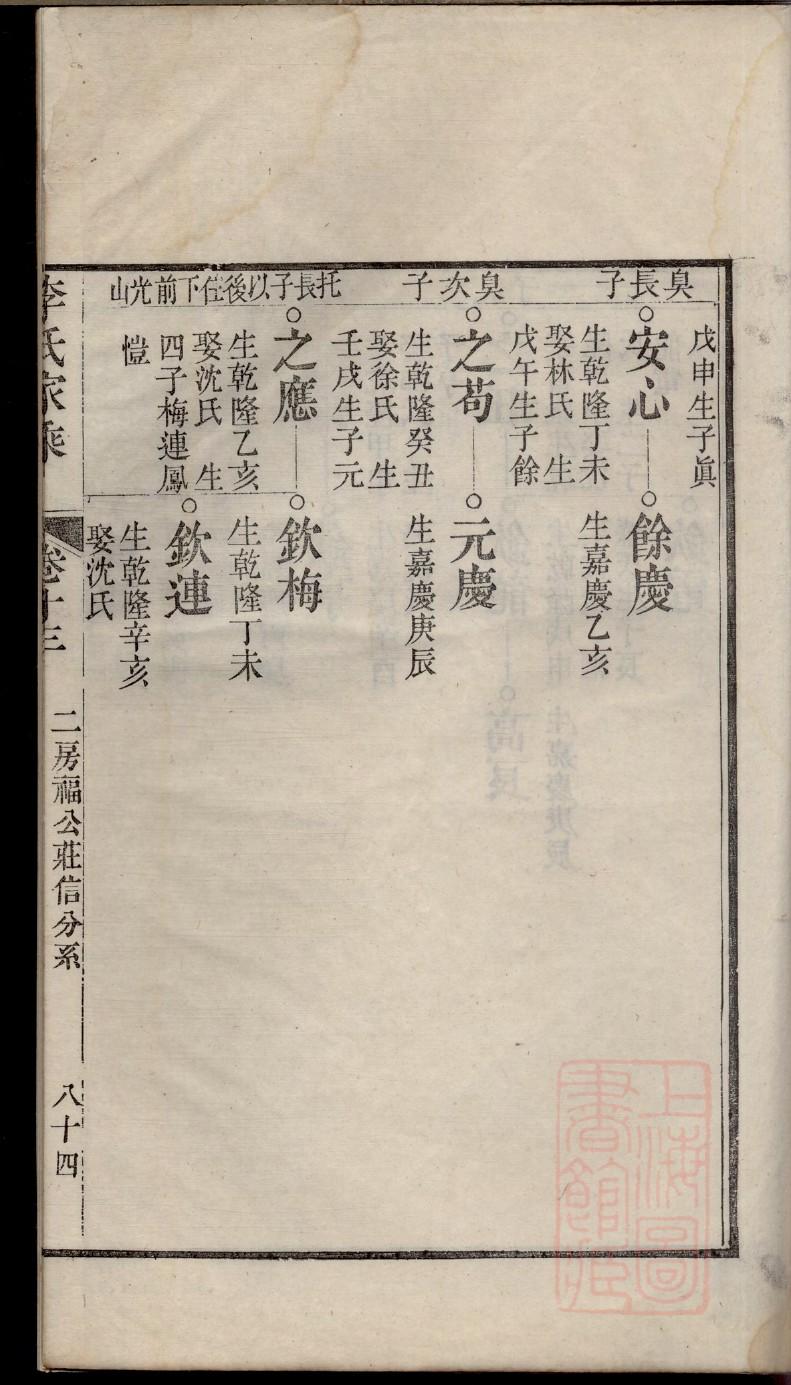 戊申生子眞
臭長子
安心
生乾隆丁未
娶林氏 生
戊午生子餘
餘慶
生嘉慶乙亥
臭次子
之苟
生乾隆癸丑
娶徐氏 生
壬戌生子元
元慶
生嘉慶庚辰
托長子以後住下前光山
之應
生乾隆乙亥
娶沈氏 生
四子梅連鳳
愷
欽梅
生乾隆丁未
欽連
生乾隆辛亥
娶沈氏
李氏家乘
卷十三
二房福公莊信分系
八十四
上海圖
書館藏